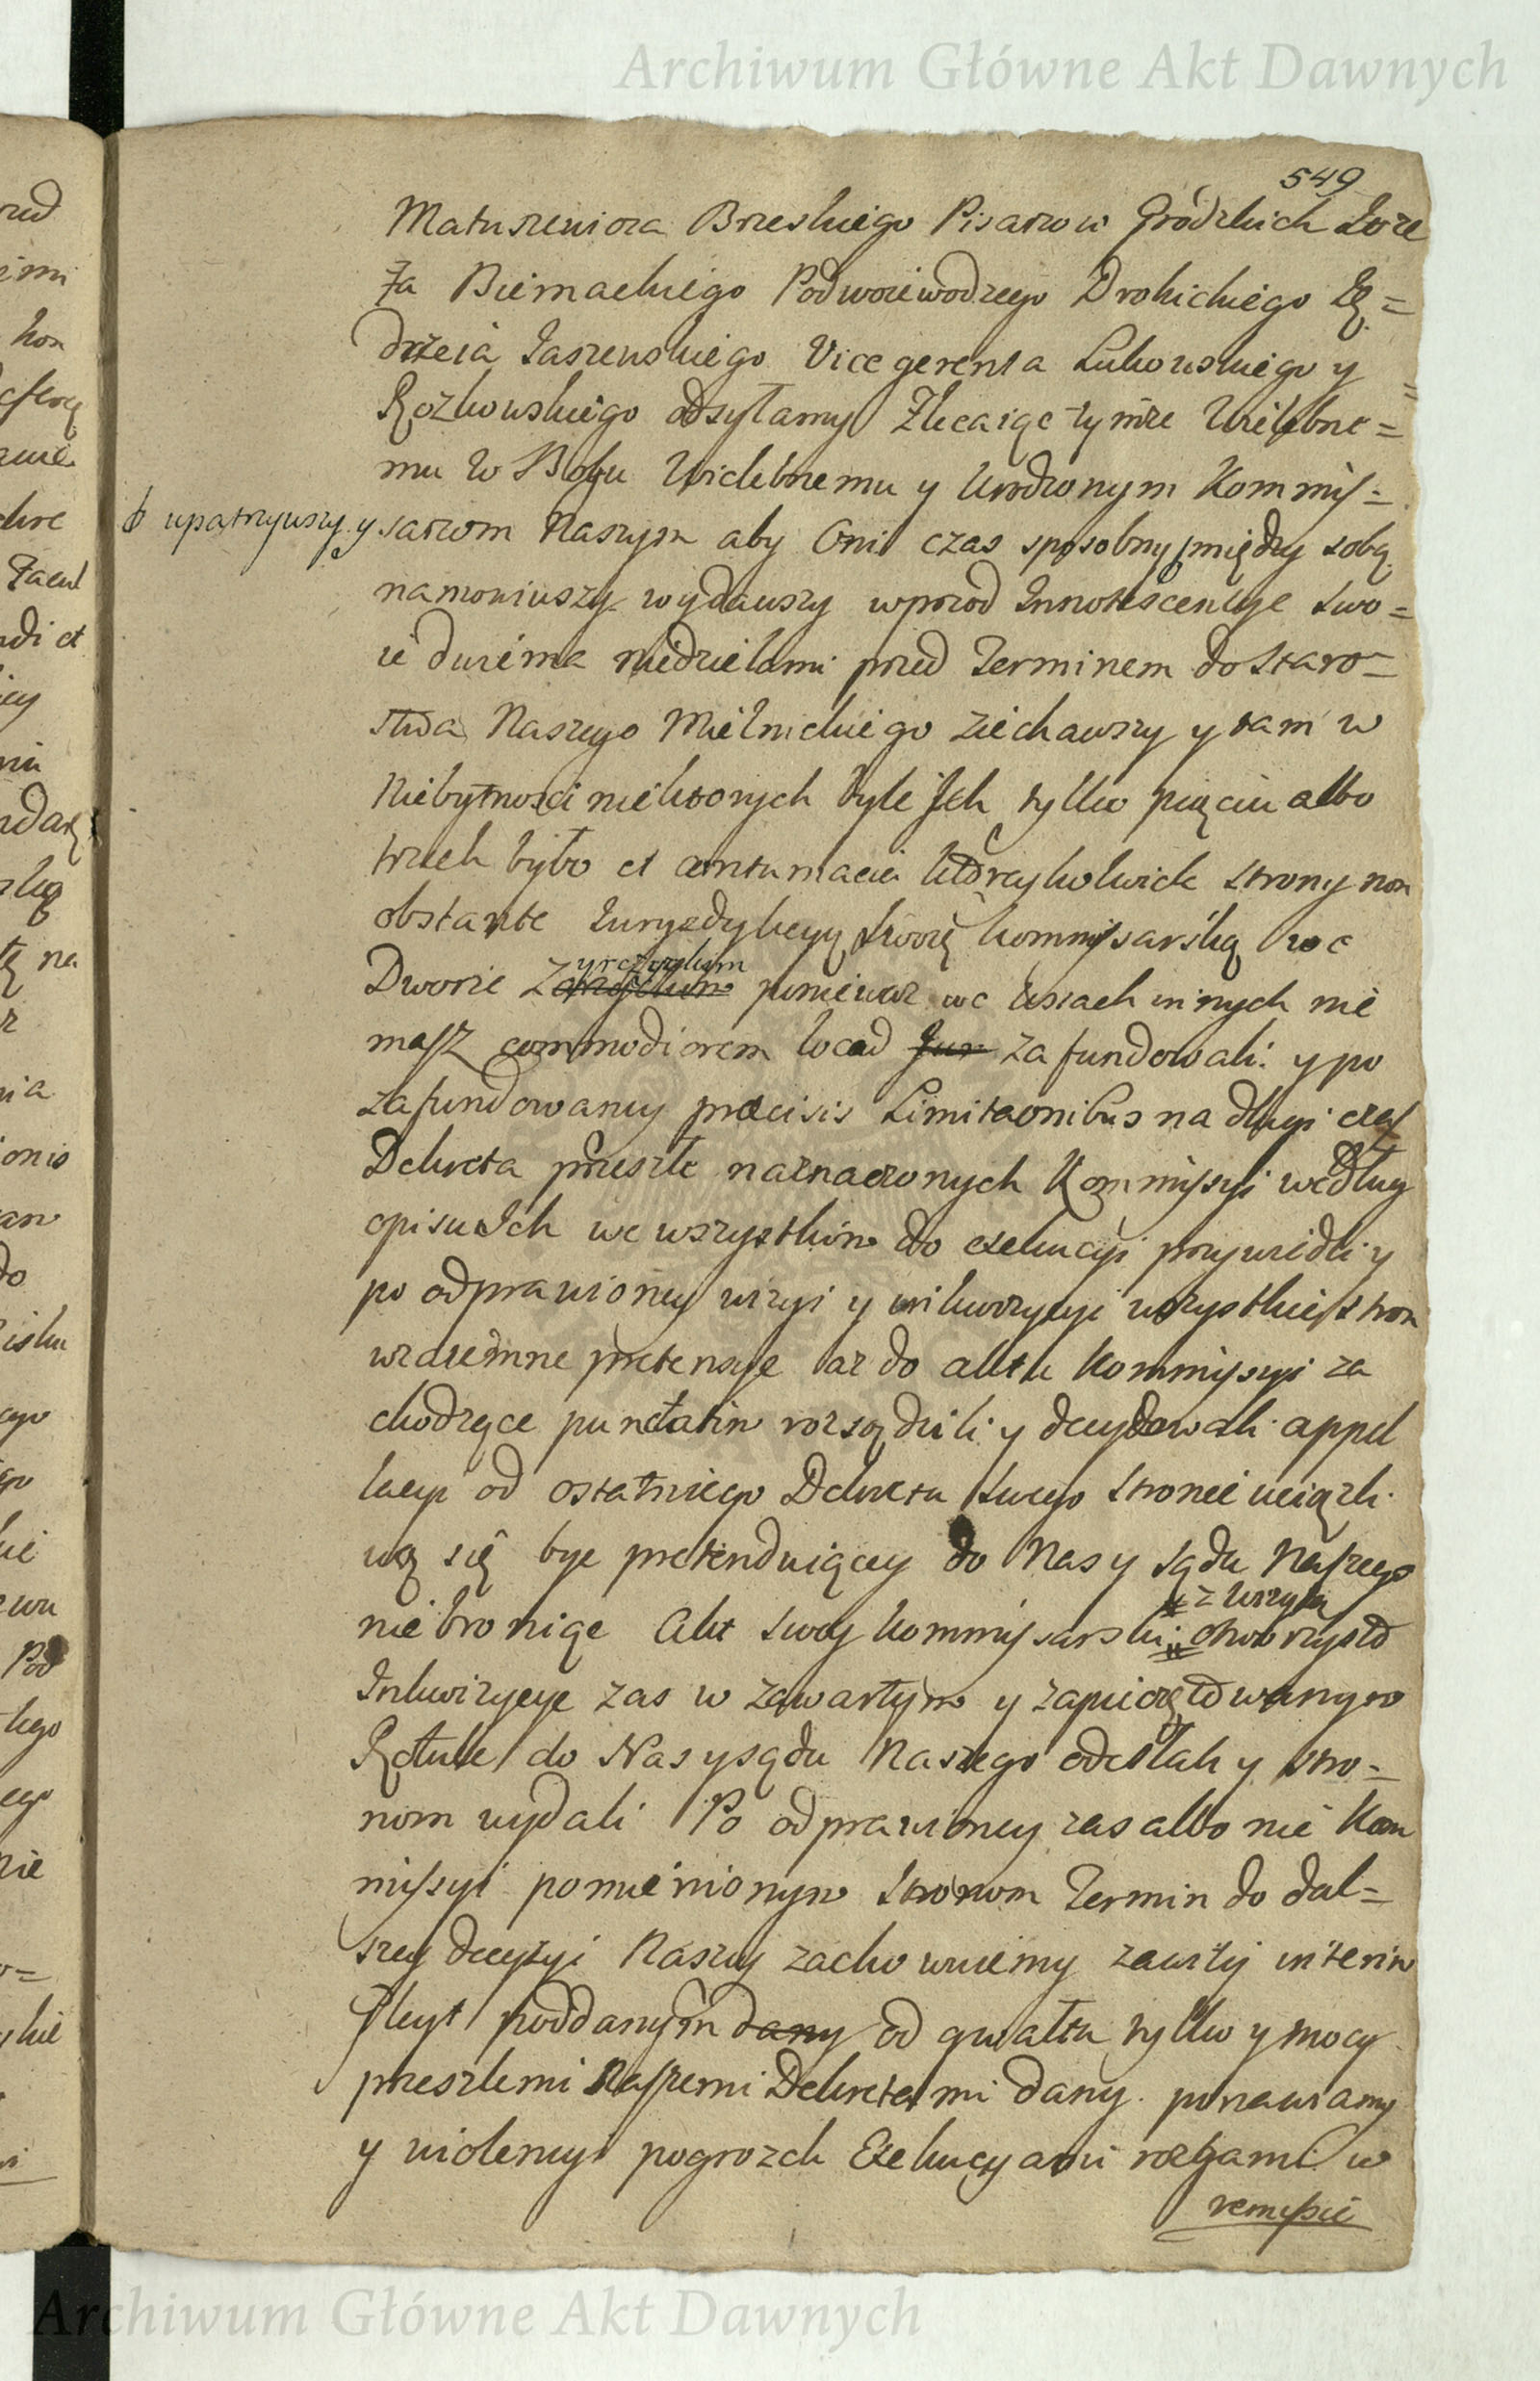 Archiwum Główne Akt Dawnych
549
Matuszewicza Brzeskiego Pisarzow Gródzkich Joze
fa Biernackiego Podwoiewodzego Drohickiego Ję=
drzeia Jaszewskiego Vice gerenta Łukowskiego y
Rożkowskiego odsyłamy Zlecaiąc tymże Wielebne=
mu w Bogu Wielebnemu y Urodzonym Kommis=
upatrzywszy y
sarzom Naszym aby Oni czas sposobny między sobą
namowiwszy wydawszy wprzod Innotescencye swo=
ie dwiema niedzielami przed Terminem do Staro=
stwa Naszego Mielnickiego ziechawszy y tam w
Niebytnosci niektorych byle Jch tylko pięciu albo
trzech było et contumacia ktoreykolwiek strony non
obstante Juryzdykcyą swoię kommissarską we
Dworze ponieważ we wsiach innych nie
masz commodiorem locad Jur zafundowali y po
zafundowaney praecisis Limitaonibus na długi czas
Dekreta przeszłe naznaczonych Kommissyi według
opisu Jch we wszystkim do exekucyi przywiedli y
po odprawioney wizyi y inkwizycyi wszystkie stron
wzaiemne pretensye aż do aktu Kommissyi za
chodzące punctatim rozsądzili y decydowali appel
lacyi od ostatniego Dekretu swego stronie uciążli
wą się bye pretenduiącey do Nas y sądu Naszego
nie broniąc Akt swoy kommissarski otworzysto
z wizyią
Inkwizycye zas w zawartym y zapieczętowanym
Rotule do Nas y sądu Naszego odesłali y stro=
nom wydali Po odprawioney zas albo nie Kom
missyi pomienionym stronom Termin do dal=
szey decyzyi Naszey zachowuiemy zawity interim
Gleyt poddanym dany od gwałtu tylko y mocy
przeszłemi Naszemi Dekretami dany ponawiamy
y violencyi pogrozek Exekucyami rozgami w
remissie
Archiwum Główne Akt Dawnych